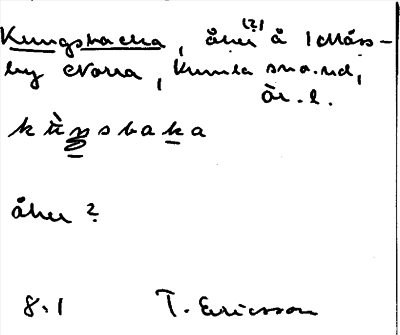 Kungsbacka, åker (?) å Måss-
by Norra, Kumla sn o. hd,
Ör. l.
k ù n s b a k a
åker ?
8.1 T. Ericsson